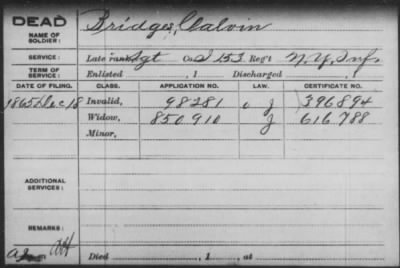 DEAD
NAME OF SOLDIER: Bridges, Calvin
SERVICE: Late rank, Sgt Co. I 153 Reg't N.Y. Inf.
TERM OF SERVICE: Enlisted , 1 Discharged , 1
DATE OF FILING. CLASS. APPLICATION NO. LAW. CERTIFICATE NO.
1865 Dec 18 Invalid, 98281 J 396894
Widow, 850910 J 616788
Minor,
ADDITIONAL SERVICES:
REMARKS:
Died , 1 , at